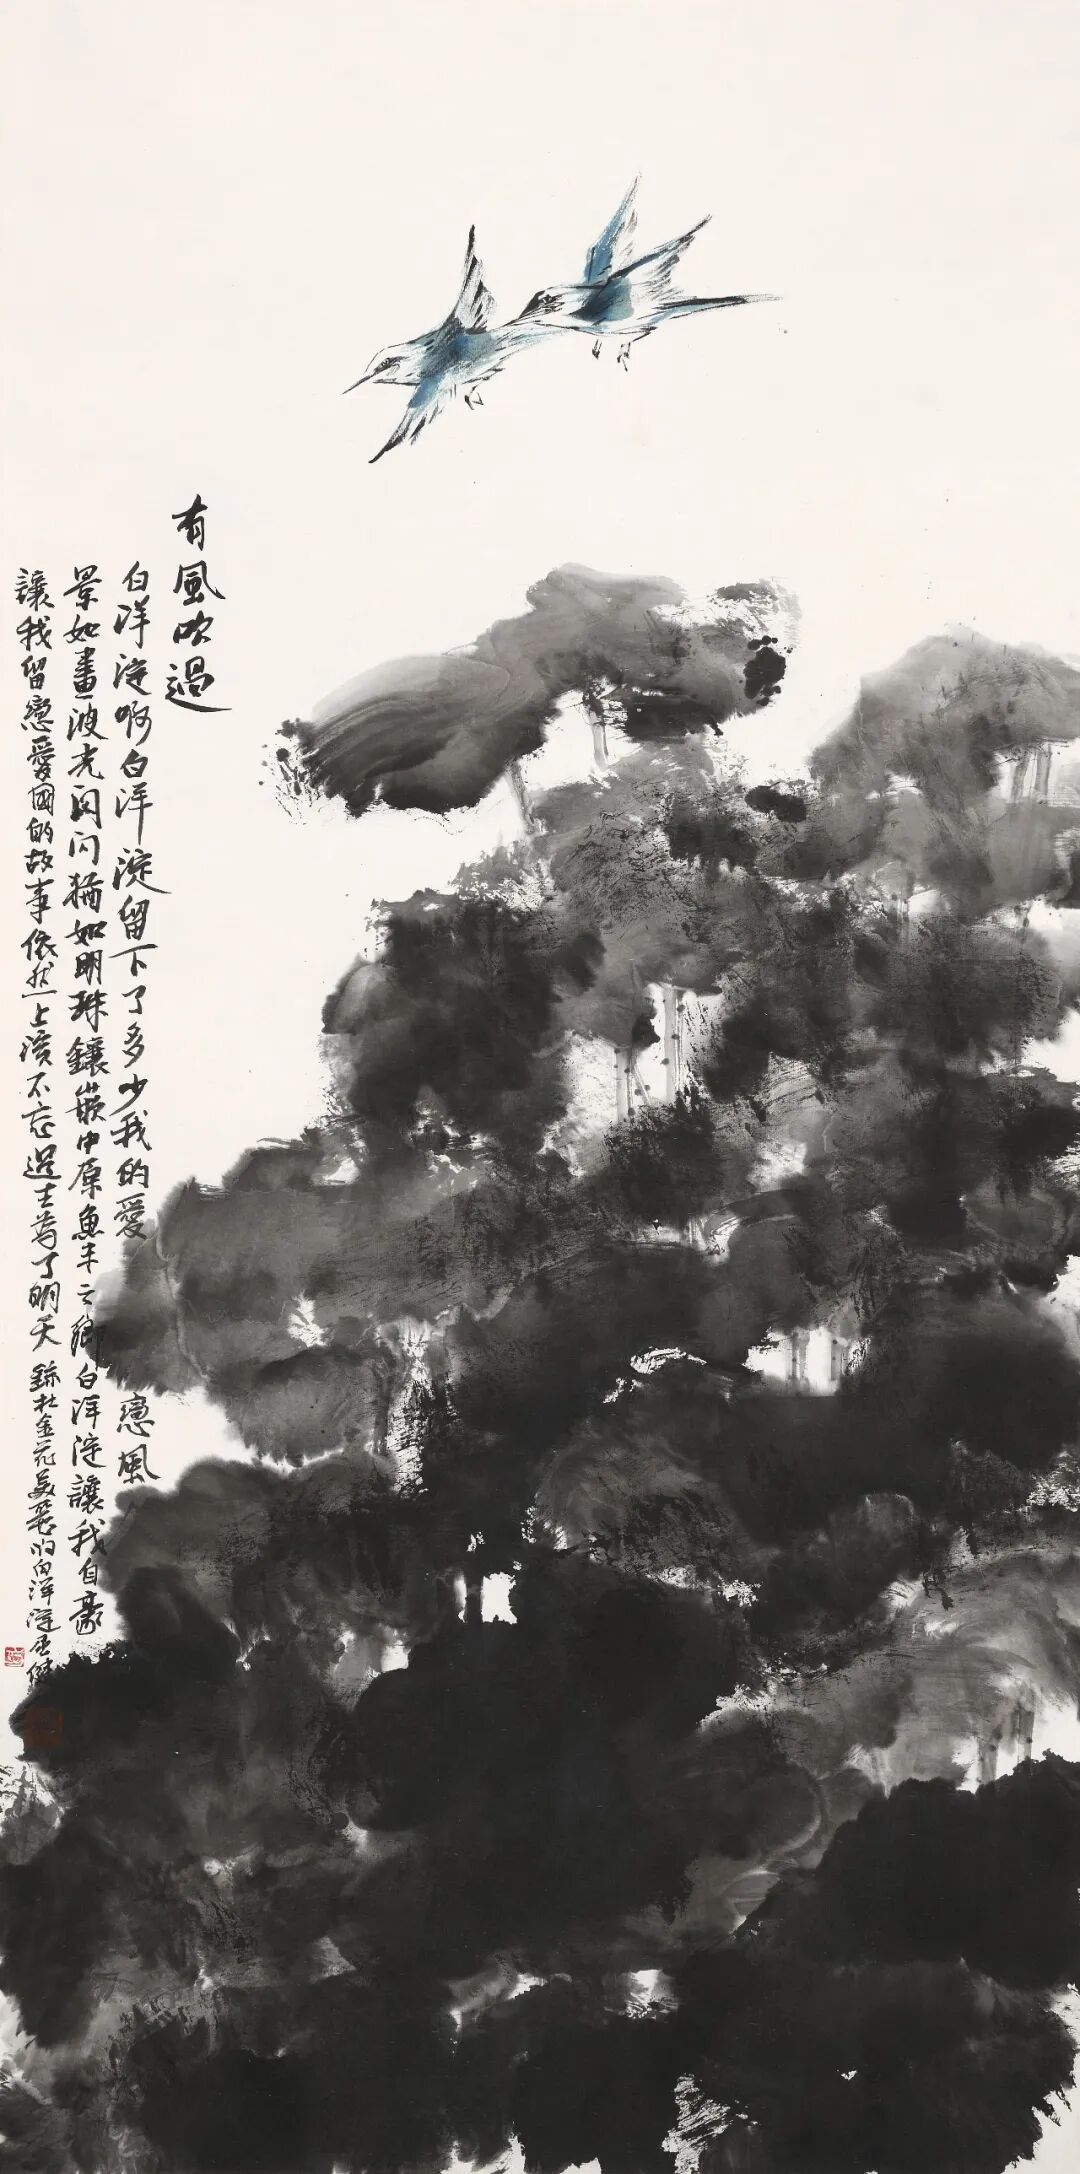 有風吹過
白洋淀啊白洋淀留下了多少我的愛 戀風
景如畫波光闪闪猶如明珠鑲嵌中原魚米之鄉白洋淀讓我自豪
讓我留戀愛國的故事依然上演不忘過去為了明天 錄杜金花美麗的白洋淀